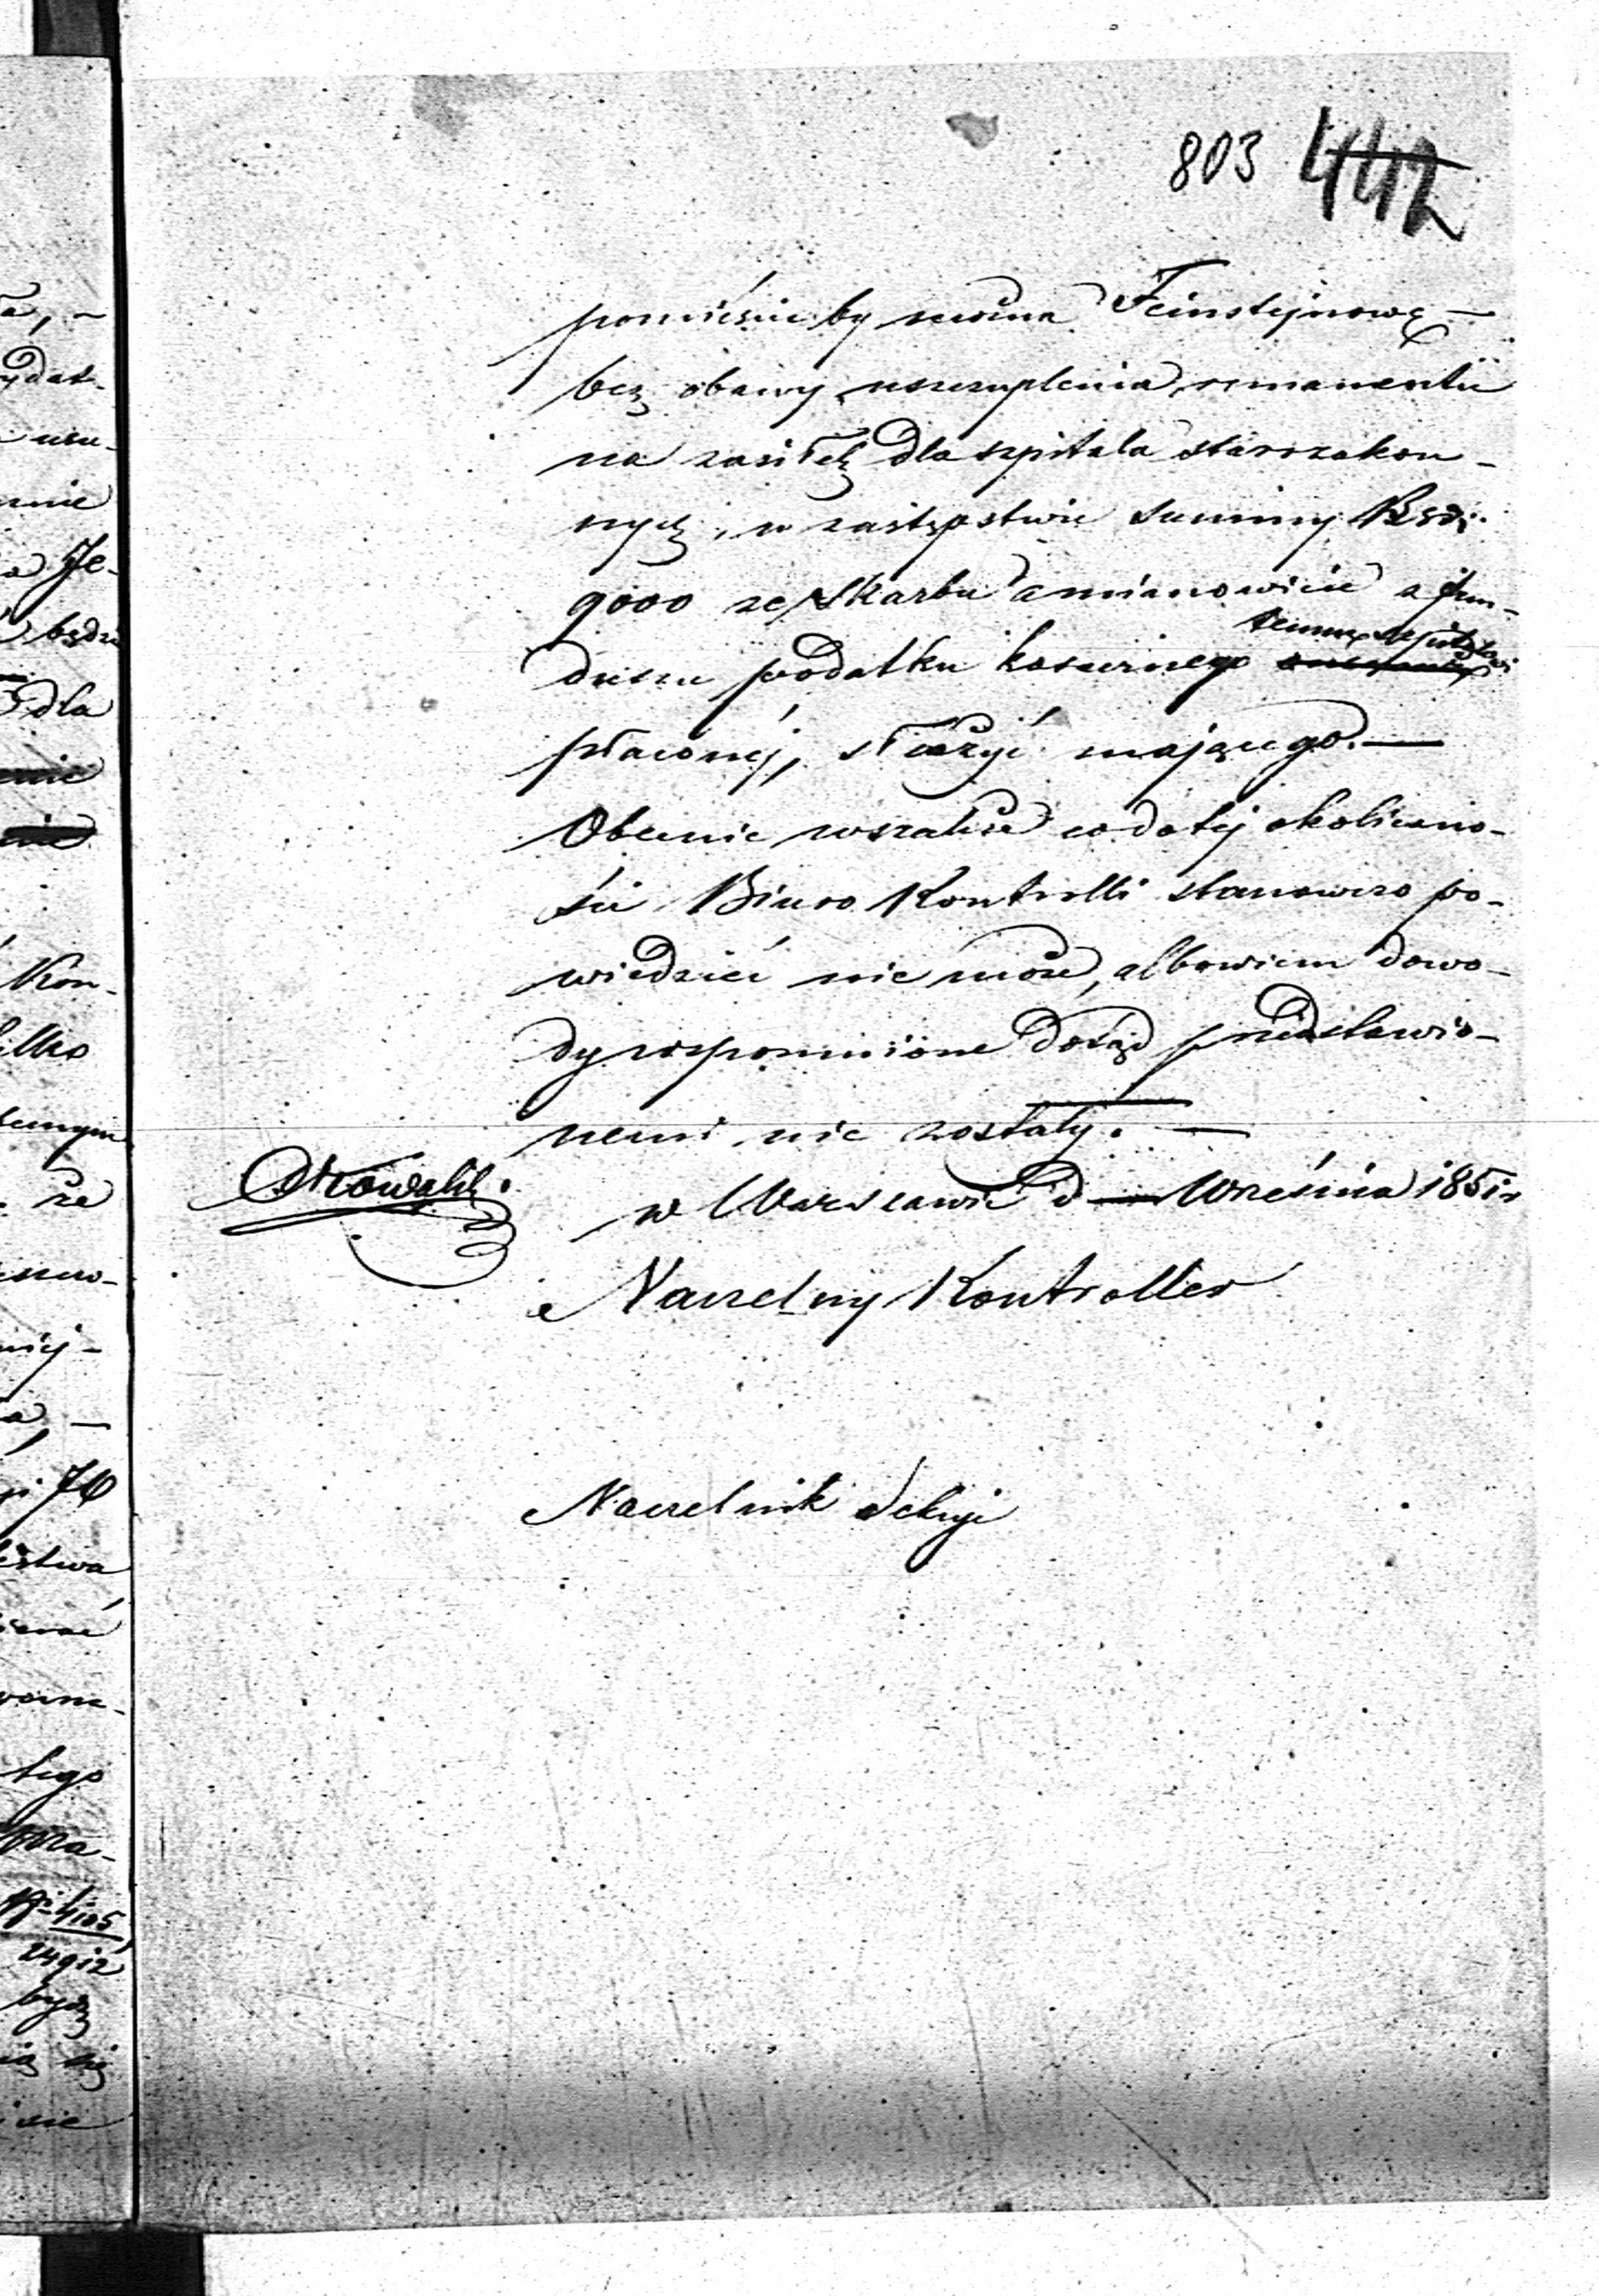 803 442
pomieścić by można Feinstejnowę —
bez obawy uszczuplenia remanentu
na zasiłek dla szpitala starozakon-
nych, w zastępstwie summy Rsr.
9000 ze Skarbu a mianowicie z fun-
temuż szpitalowi
duszu podatku koszernego
płaconej, służyć mającego. —
Obecnie wszakże co do tej okoliczno-
ści Biuro Kontrolli stanowczo po-
wiedzieć nie może, albowiem dowo-
dy wspomnione dotąd przedstawio-
nemi nie zostały. —
w Warszawie d — Września 1851 r
Naczelny Kontroller
Naczelnik Sekcji
ydat-
Je-
będzie
dla
Kon-
że
tego
4105
24912